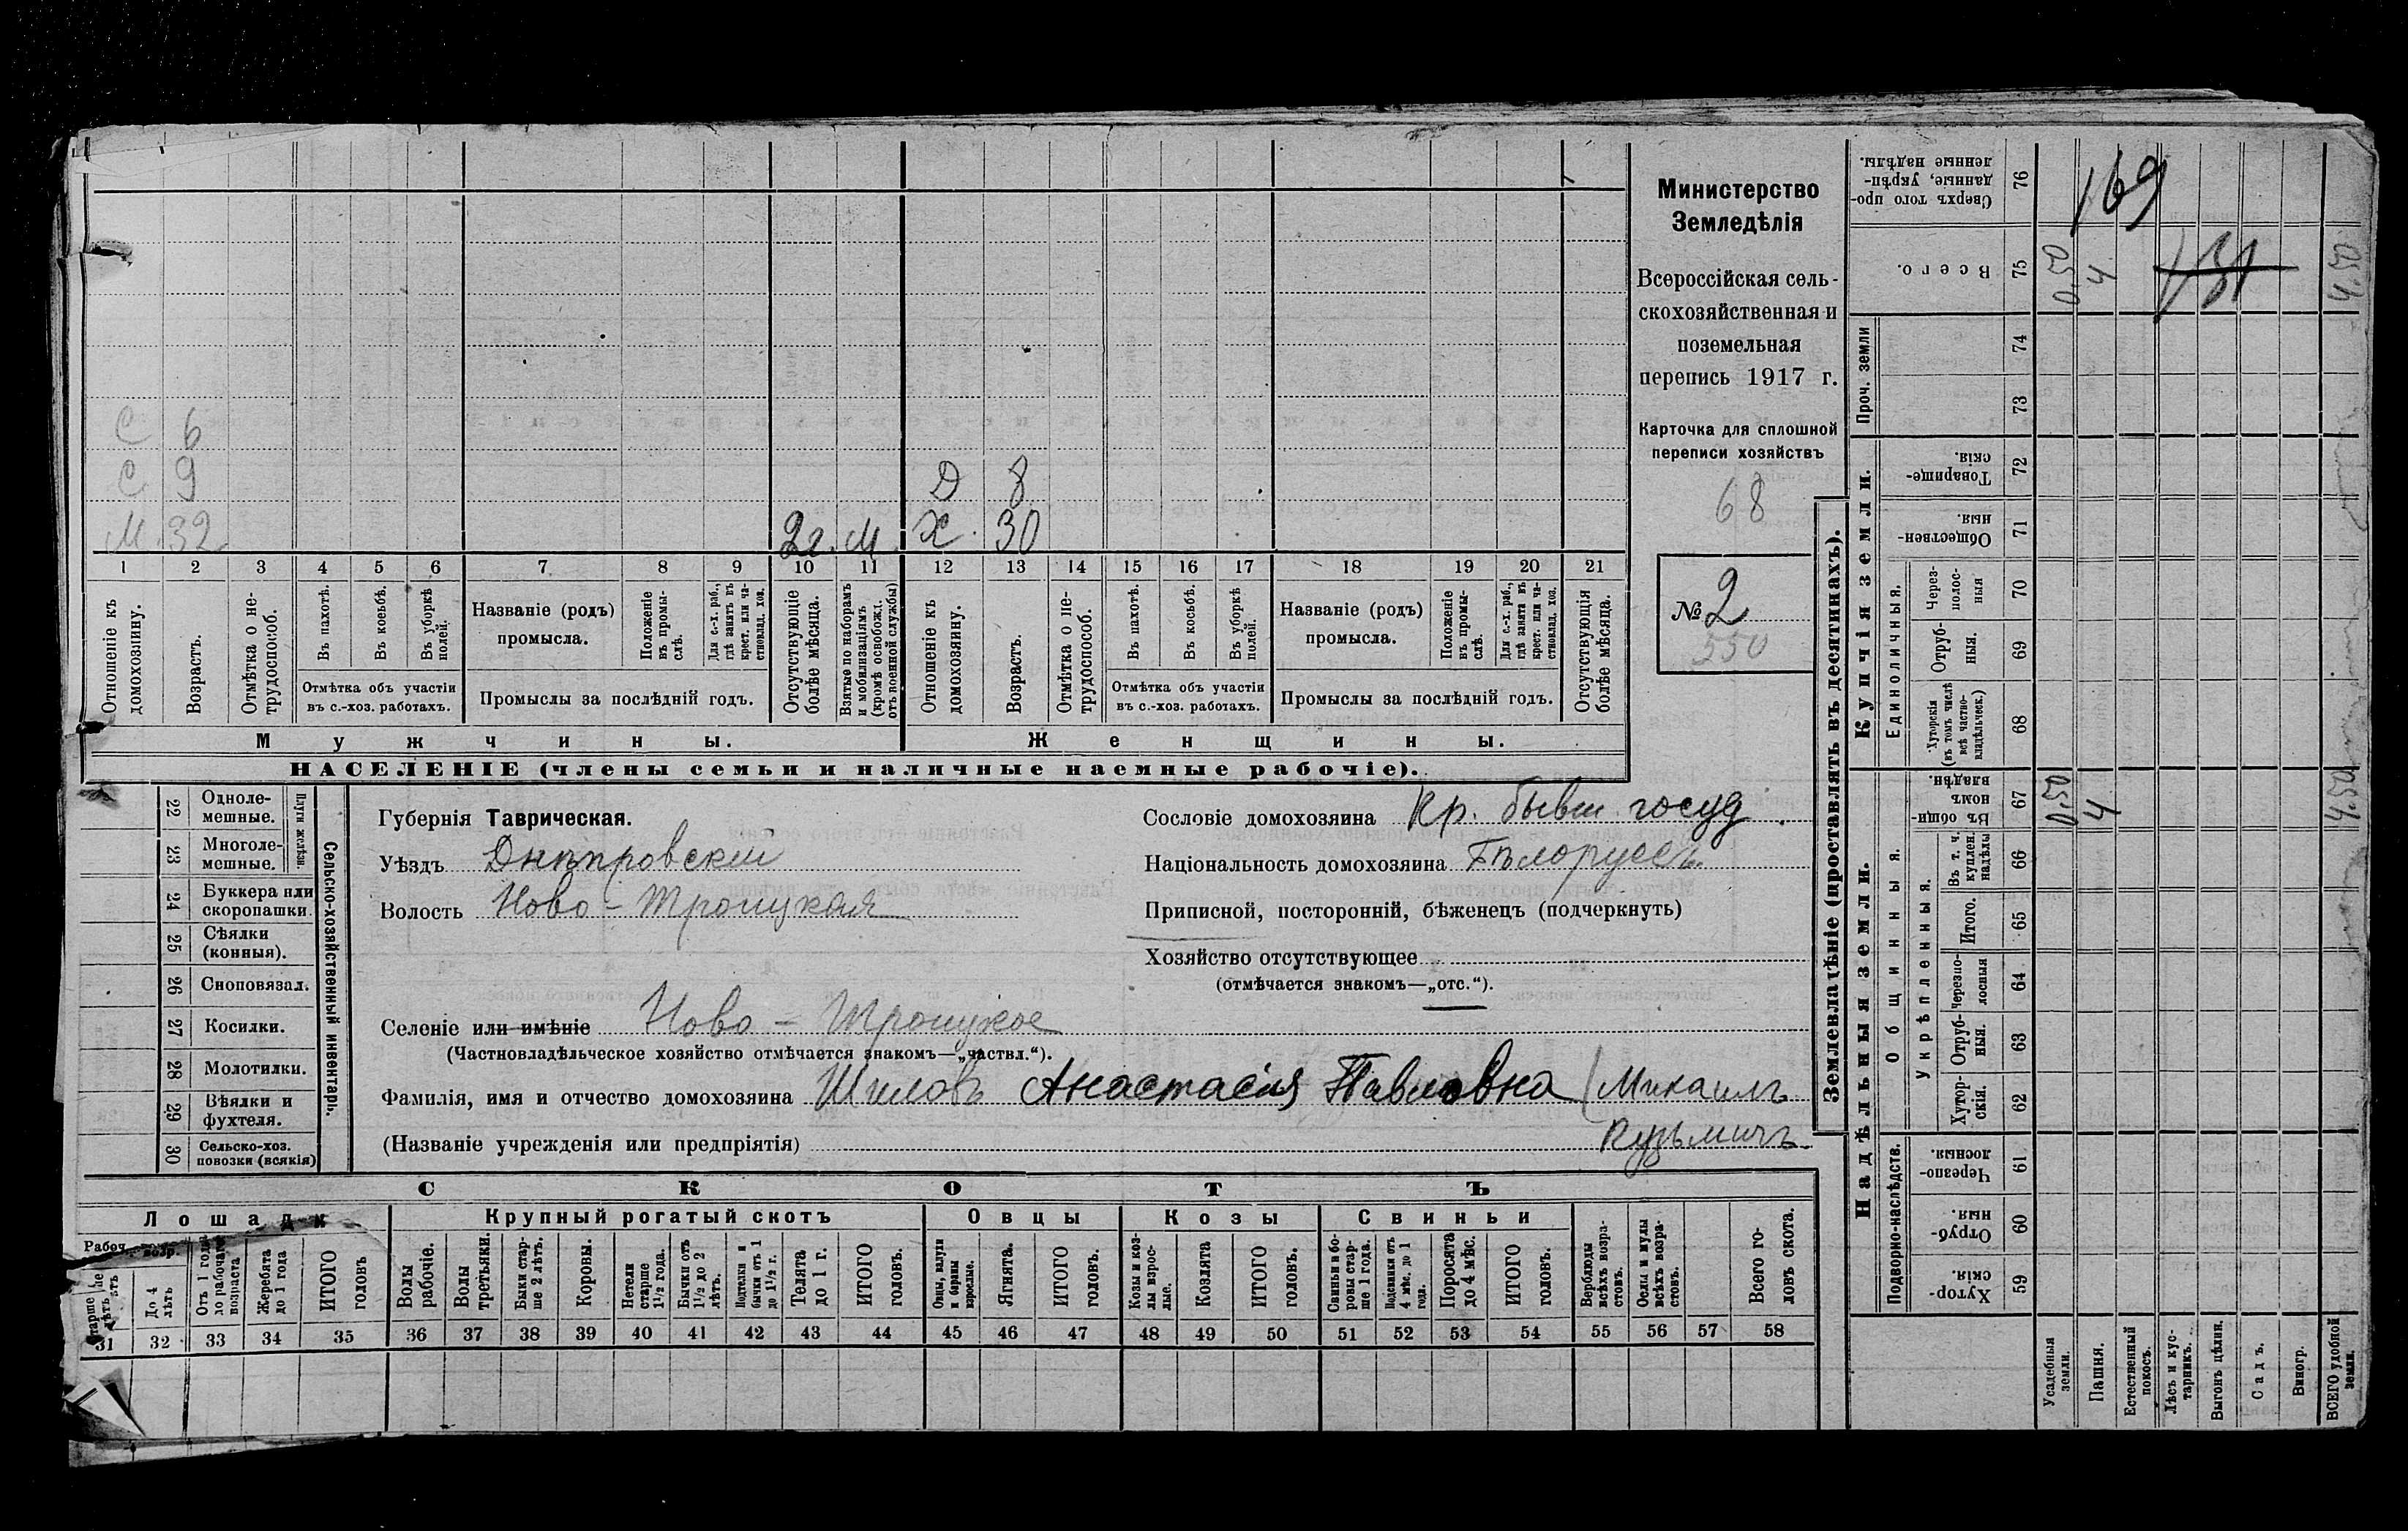 С 6
С 9 Д 8
М. 32 2г. М. Х. 30
1 2 3 4 5 6 7 8 9 10 11 12 13 14 15 16 17 18 19 20 21
Отношеніе къ домохозяину.
Возрастъ.
Отмѣтка о не-трудоспособ.
Въ пахотѣ.
Въ косьбѣ.
Въ уборкѣ полей.
Отмѣтка объ участіи
въ с.-хоз. работахъ.
Названіе (родъ)
промысла.
Положеніе въ промы-слѣ.
Для с.-х. раб., гдѣ занятъ въ крест. или ча-стновлад. хоз.
Промыслы за послѣдній годъ.
Отсутствующіе болѣе мѣсяца.
Взятые по наборамъ и мобилизаціямъ (кромѣ освобожд. отъ военной службы)
Отношеніе къ домохозяину.
Возрастъ.
Отмѣтка о не-трудоспособ.
Въ пахотѣ.
Въ косьбѣ.
Въ уборкѣ полей.
Отмѣтка объ участіи
въ с.-хоз. работахъ.
Названіе (родъ)
промысла.
Положеніе въ промы-слѣ.
Для с.-х. раб., гдѣ занята въ крест. или ча-стновлад. хоз.
Промыслы за послѣдній годъ.
Отсутствующія болѣе мѣсяца.
Мужчины. Женщины.
НАСЕЛЕНІЕ (члены семьи и наличные наемные рабочіе).
Министерство
Земледѣлія
Всероссійская сель-
скохозяйственная и
поземельная
перепись 1917 г.
Карточка для сплошной
переписи хозяйствъ
68
№ 2
550
Плуги желѣзн.
22 Одноле-мешные.
23 Многоле-мешные.
24 Буккера или скоропашки.
25 Сѣялки (конныя).
26 Сноповязал.
27 Косилки.
28 Молотилки.
29 Вѣялки и фухтеля.
30 Сельско-хоз. повозки (всякія)
Сельско-хозяйственный инвентарь.
Губернія Таврическая.
Уѣздъ Днѣпровскій
Волость Ново-Троицкая
Сословіе домохозяина Кр. бывш. госуд.
Національность домохозяина Бѣлоруссъ
Приписной, посторонній, бѣженецъ (подчеркнуть)
Хозяйство отсутствующее
(отмѣчается знакомъ—„отс.“).
Селеніе или имѣніе Ново-Троицкое
(Частновладѣльческое хозяйство отмѣчается знакомъ—„частвл.“).
Фамилія, имя и отчество домохозяина Шиловъ Анастасія Павловна / Михаилъ
(Названіе учрежденія или предпріятія) Кузьмичъ
СКОТЪ
Лошади Крупный рогатый скотъ Овцы Козы Свиньи
Рабоч.
До 4 лѣтъ
Отъ 1 года до рабочаго возраста
Жеребята до 1 года
ИТОГО головъ
Волы рабочіе.
Волы третьяки.
Быки стар-ше 2 лѣтъ.
Коровы.
Нетели старше 1½ года.
Бычки отъ 1½ до 2 лѣтъ.
Подтелки и бычки отъ 1 до 1½ г.
Телята до 1 г.
ИТОГО головъ.
Овцы, валухи и бараны взрослые.
Ягнята.
ИТОГО головъ.
Козы и коз-лы взрос-лые.
Козлята
ИТОГО головъ.
Свиньи и бо-ровы стар-ше 1 года.
Подсвинки отъ 4 мѣс. до 1 года.
Поросята до 4 мѣс.
ИТОГО головъ.
Верблюды всѣхъ возра-стовъ.
Ослы и мулы всѣхъ возра-стовъ.
Всего го-ловъ скота.
31 32 33 34 35 36 37 38 39 40 41 42 43 44 45 46 47 48 49 50 51 52 53 54 55 56 57 58
Землевладѣніе (проставлять въ десятинахъ).
Надѣльныя земли. Купчія земли. Проч. земли
Подворно-наслѣдств.
Общинныя.
Укрѣпленныя.
Единоличныя.
59 Хутор-скія.
60 Отруб-ныя.
61 Черезпо-лосныя.
62 Хутор-скія.
63 Отруб-ныя.
64 Черезпо-лосныя
65 Итого.
66 Въ т. ч. куплен. надѣлы
67 Въ общи-номъ владѣн.
68 Хуторскія (въ томъ числѣ всѣ частно-владѣльческ.)
69 Отруб-ныя.
70 Через-полос-ныя
71 Обществен-ныя.
72 Товарище-скія.
73
74
75 Всего.
76 Сверхъ того про-данные, укрѣп-ленные надѣлы.
Усадебныя земли. 0,50 0,50
Пашня. 4 4
Естественный покосъ.
Лѣсъ и кус-тарникъ.
Выгонъ цѣлин.
Садъ.
Виногр.
ВСЕГО удобной земли. 4,50 4,50
169
131